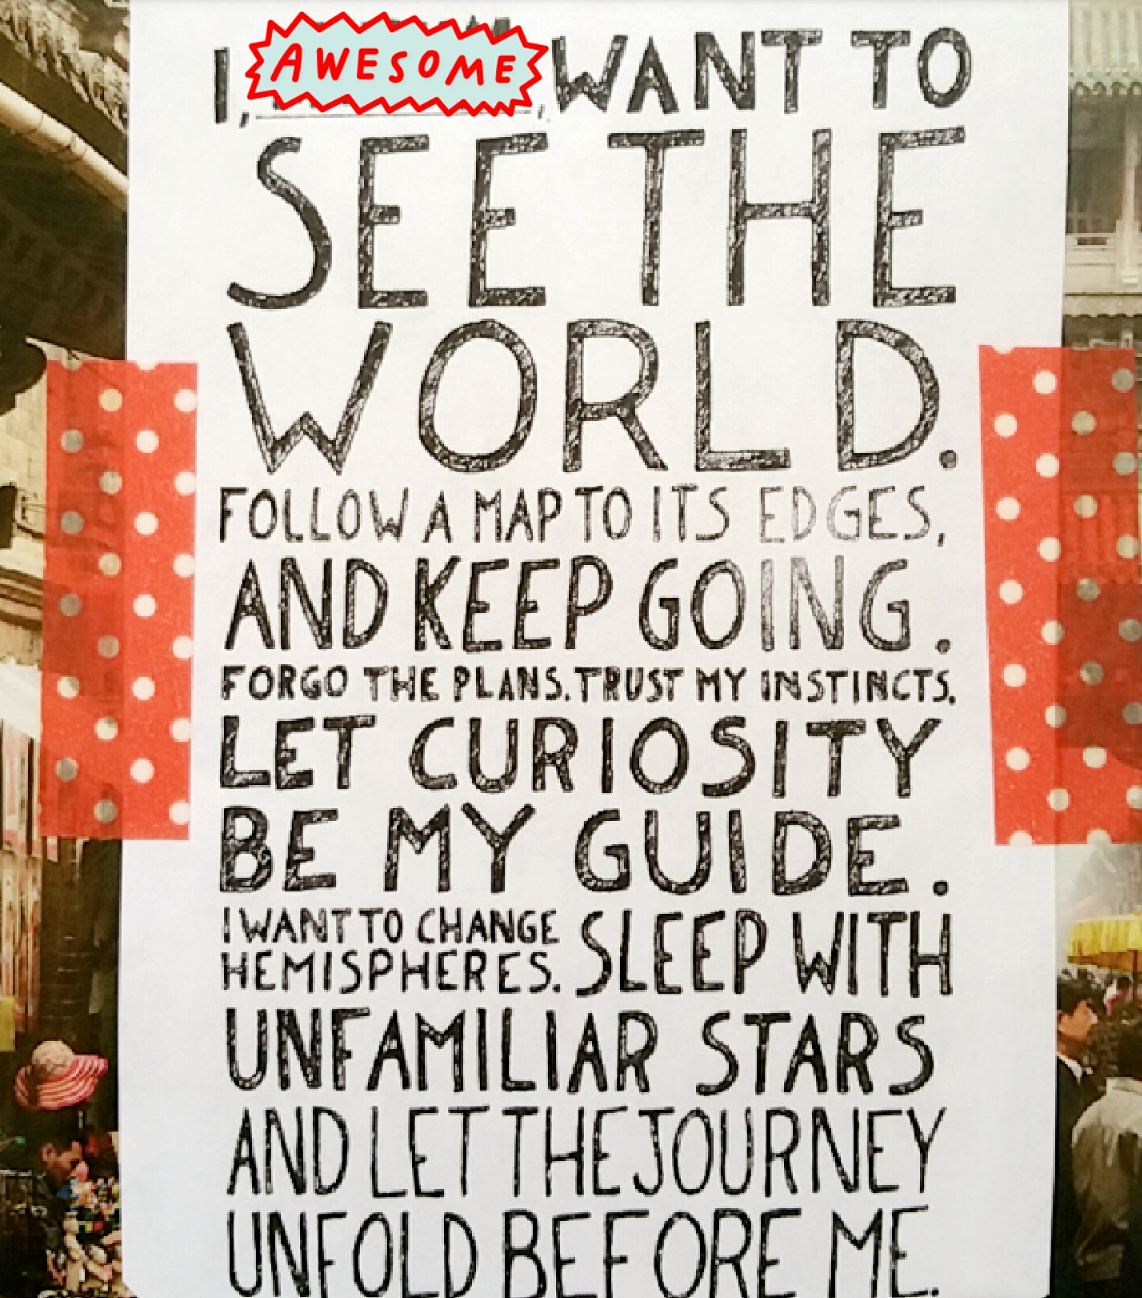 I, AWESOME, WANT TO
SEE THE
WORLD.
FOLLOW A MAP TO ITS EDGES,
AND KEEP GOING.
FORGO THE PLANS. TRUST MY INSTINCTS.
LET CURIOSITY
BE MY GUIDE.
I WANT TO CHANGE
HEMISPHERES. SLEEP WITH
UNFAMILIAR STARS
AND LET THE JOURNEY
UNFOLD BEFORE ME.